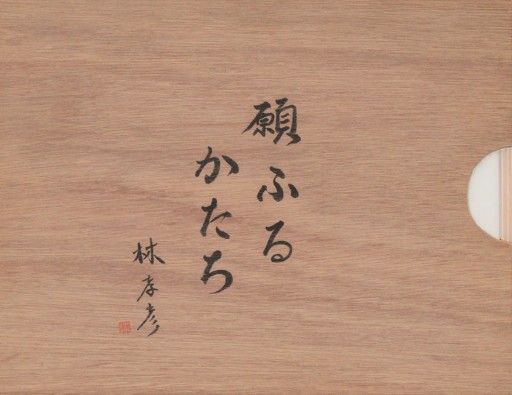 願ふる
かたち
林孝彦